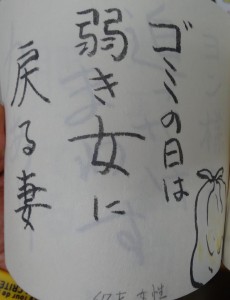 ゴミの日は
弱き女に
戻る妻
女性